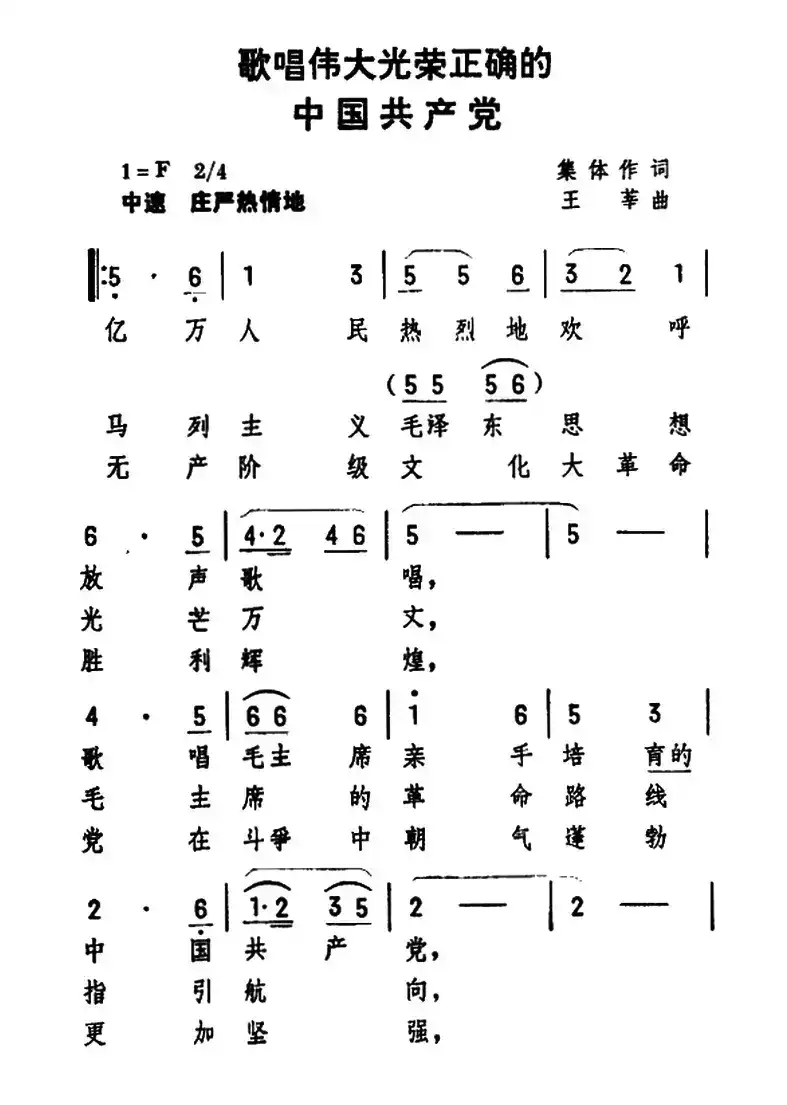 歌唱伟大光荣正确的
中国共产党
1=F 2/4 集体作词
中速 庄严热情地 王莘曲
‖:5 · 6 | 1 3 | 5 5 6 | 3 2 1 |
亿万人民热烈地欢呼
(5 5 5 6)
马列主义毛泽东思想
无产阶级文化大革命
6 · 5 | 4·2 4 6 | 5 — | 5 — |
放声歌唱,
光芒万丈,
胜利辉煌,
4 · 5 | 6 6 6 | 1 6 | 5 3 |
歌唱毛主席亲手培育的
毛主席的革命路线
党在斗爭中朝气蓬勃
2 · 6 | 1·2 3 5 | 2 — | 2 — |
中国共产党,
指引航向,
更加坚强,